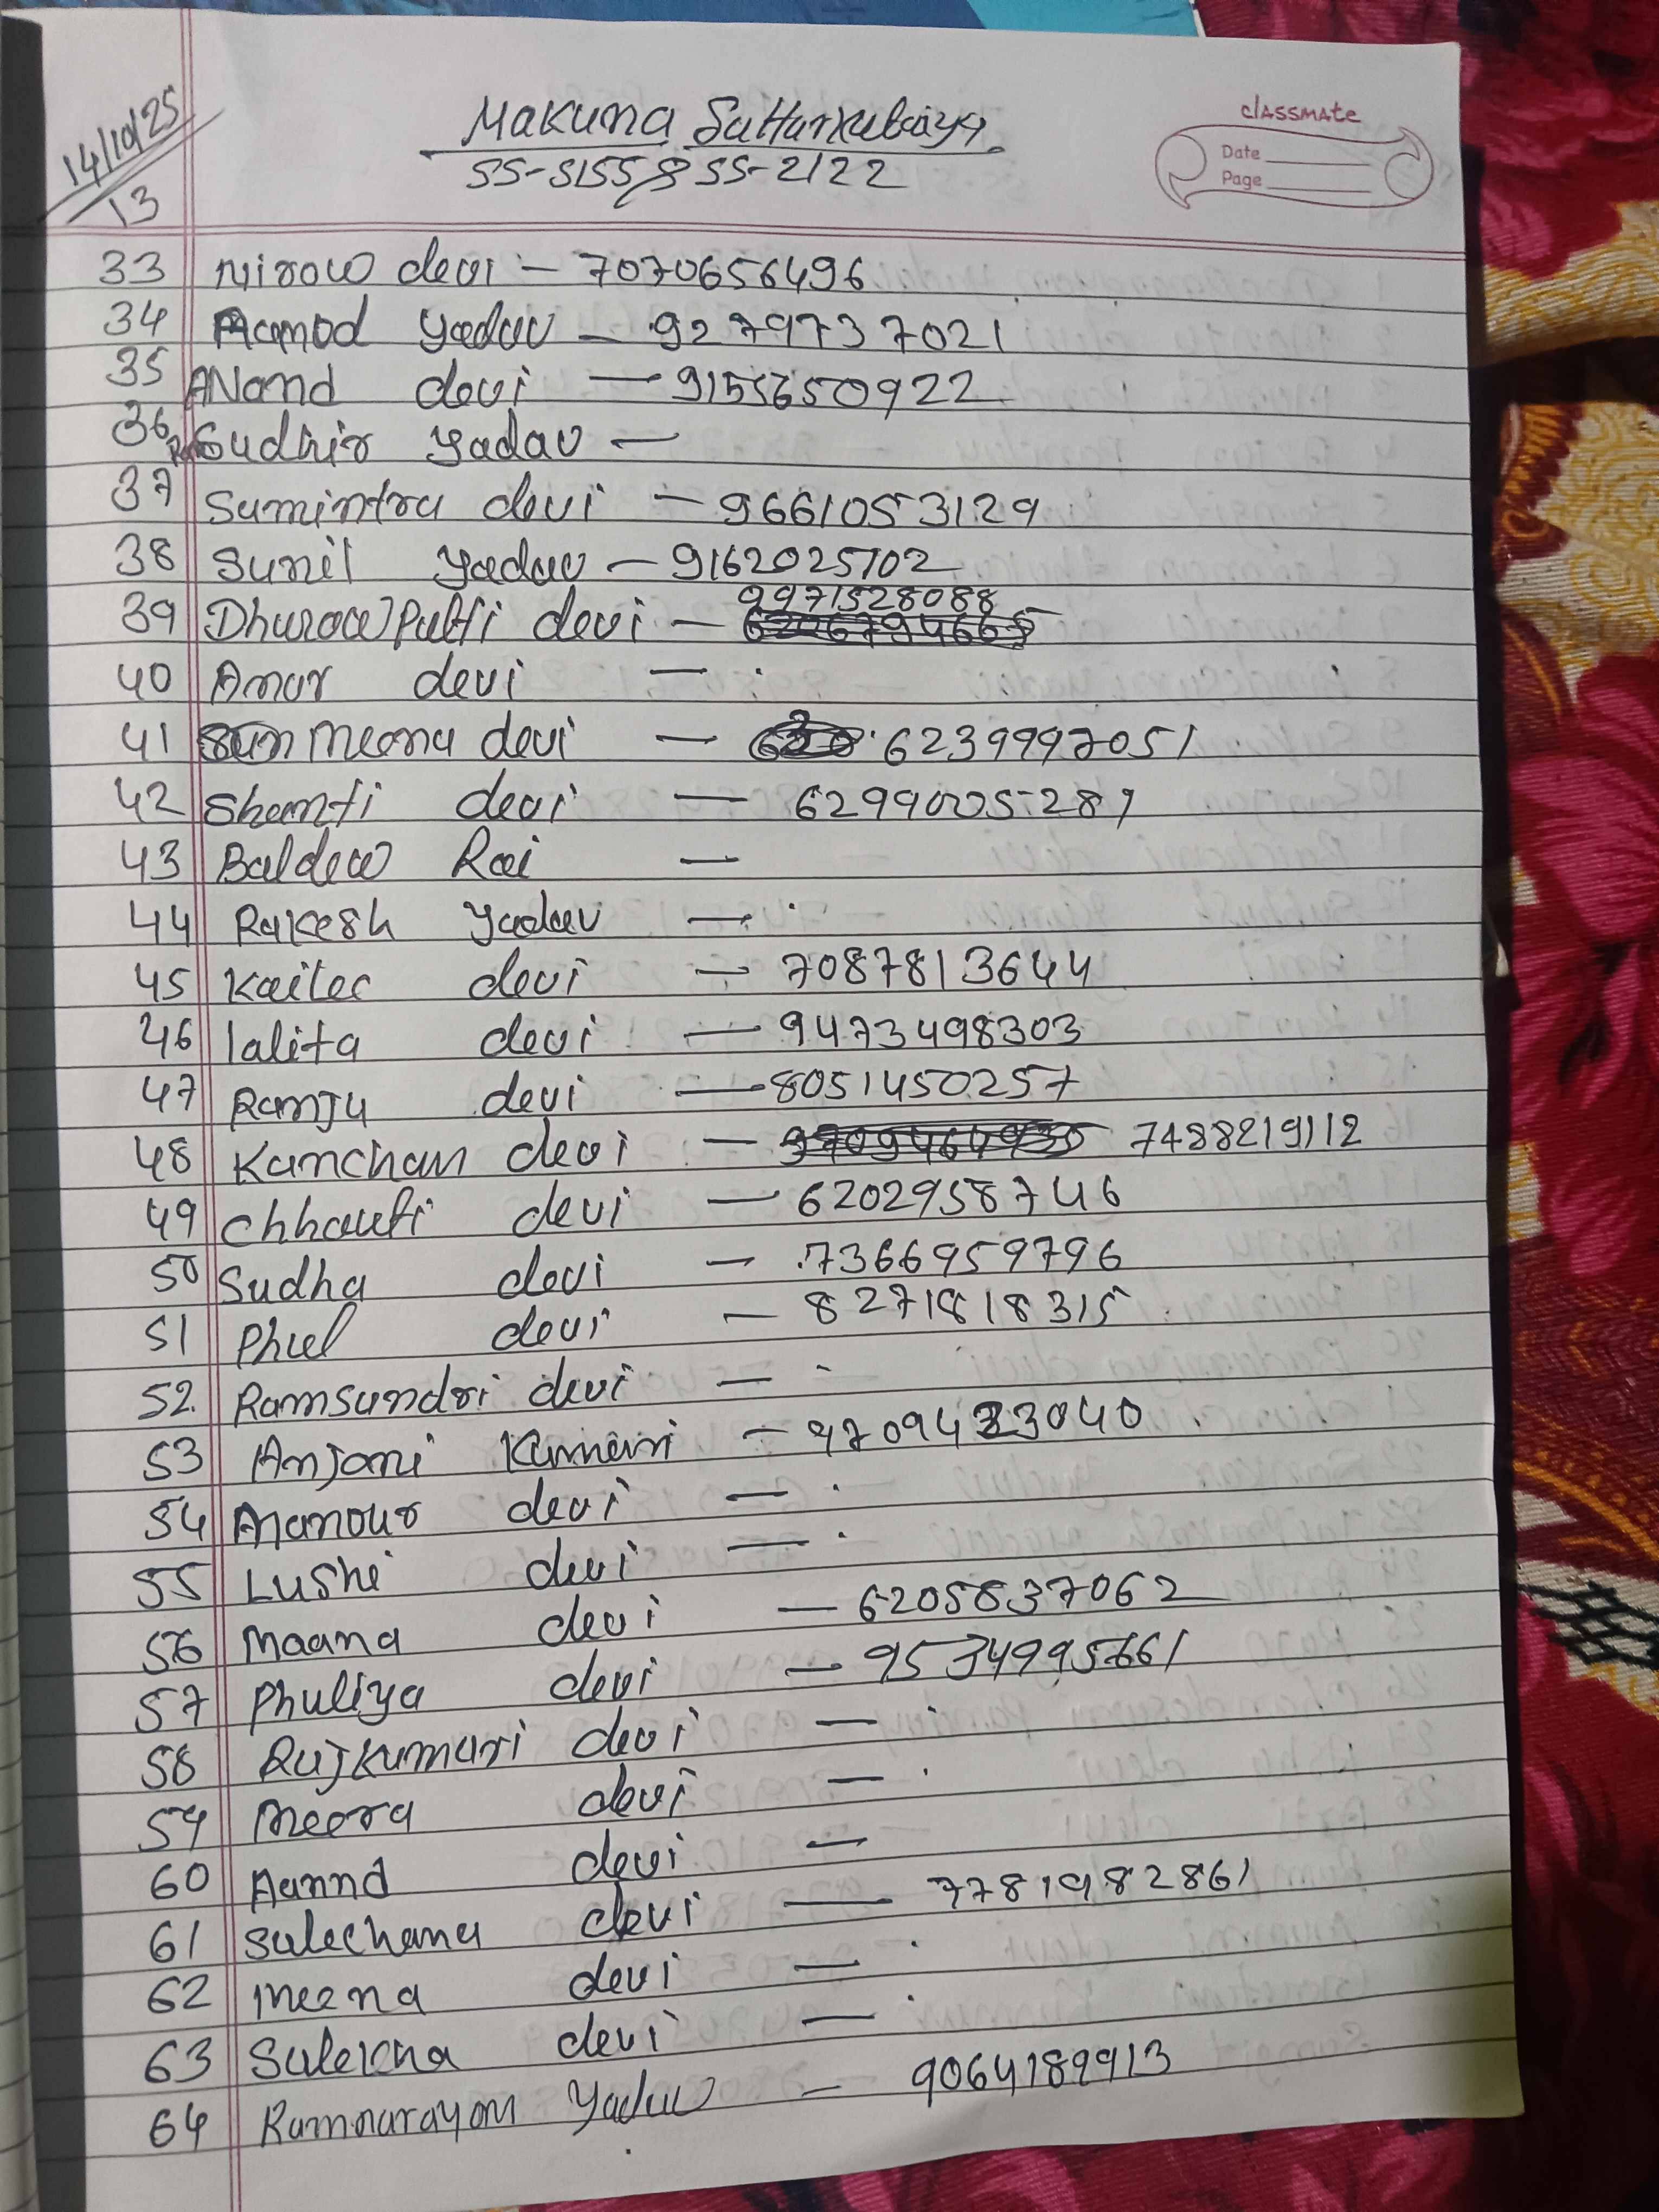 14/10/25
13
Makuna Sattarkubaiya
SS-5155 & SS-2122
classmate
Date
Page
33 Nirow devi - 7070656496
34 Aamod Yadav - 9279737021
35 ANand devi - 9155650922
36 Sudhir Yadav -
37 Sumintra devi - 9661053129
38 Sunil Yadav - 9162025702
9971528088
39 devi -
40 Amar devi -
41 devi - 6239997051
42 Shanti devi - 6299005287
43 Baldew Rai -
44 Rakesh Yadav -
45 Kailec devi - 7087813644
46 lalita devi - 9473498303
47 Ranju devi - 8051450257
48 Kanchan devi - 7488219112
49 Chhauti devi - 6202958746
50 Sudha devi - 7366959796
51 Phul devi - 8271818315
52. Ramsundri devi -
53 Anjani Kumari -
54 devi -
55 Lushi devi -
56 Maana devi - 6205837062
57 Phuliya devi - 9534995661
58 Rajkumari devi -
59 Meera devi -
60 Aannd devi -
61 Sulechana devi - 7781982861
62 Meena devi -
63 Sulekha devi -
64 Ramnarayan Yadav - 9064189913